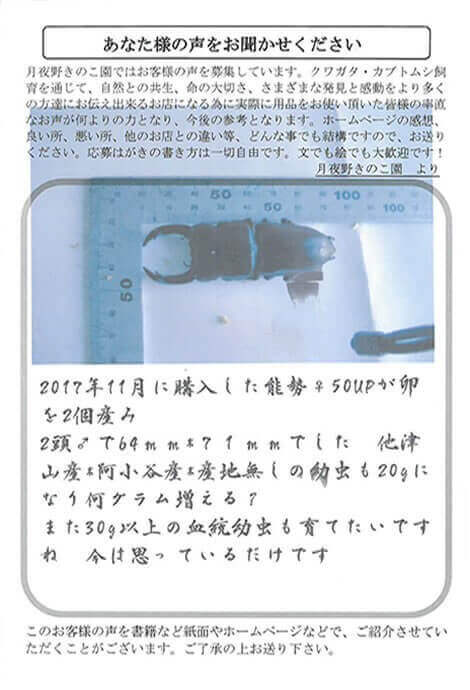 あなた様の声をお聞かせください
月夜野きのこ園ではお客様の声を募集しています。クワガタ・カブトムシ飼
育を通じて、自然との共生、命の大切さ、さまざまな発見と感動をより多く
の方達にお伝え出来るお店になる為に実際に用品をお使い頂いた皆様の率直
なお声が何よりの力となり、今後の参考となります。ホームページの感想、
良い所、悪い所、他のお店との違い等、どんな事でも結構ですので、お送り
ください。応募はがきの書き方は一切自由です。文でも絵でも大歓迎です！
月夜野きのこ園　より
50 100
50 100
50
2017年11月に購入した能勢♀50UPが卵
を2個産み
2頭♂で64mmと71mmでした　他津
山産と阿小谷産と産地無しの幼虫も20gに
なり何グラム増える?
また30g以上の血統幼虫も育てたいです
ね　今は思っているだけです
このお客様の声を書籍など紙面やホームページなどで、ご紹介させてい
ただくことがございます。ご了承の上お送り下さい。